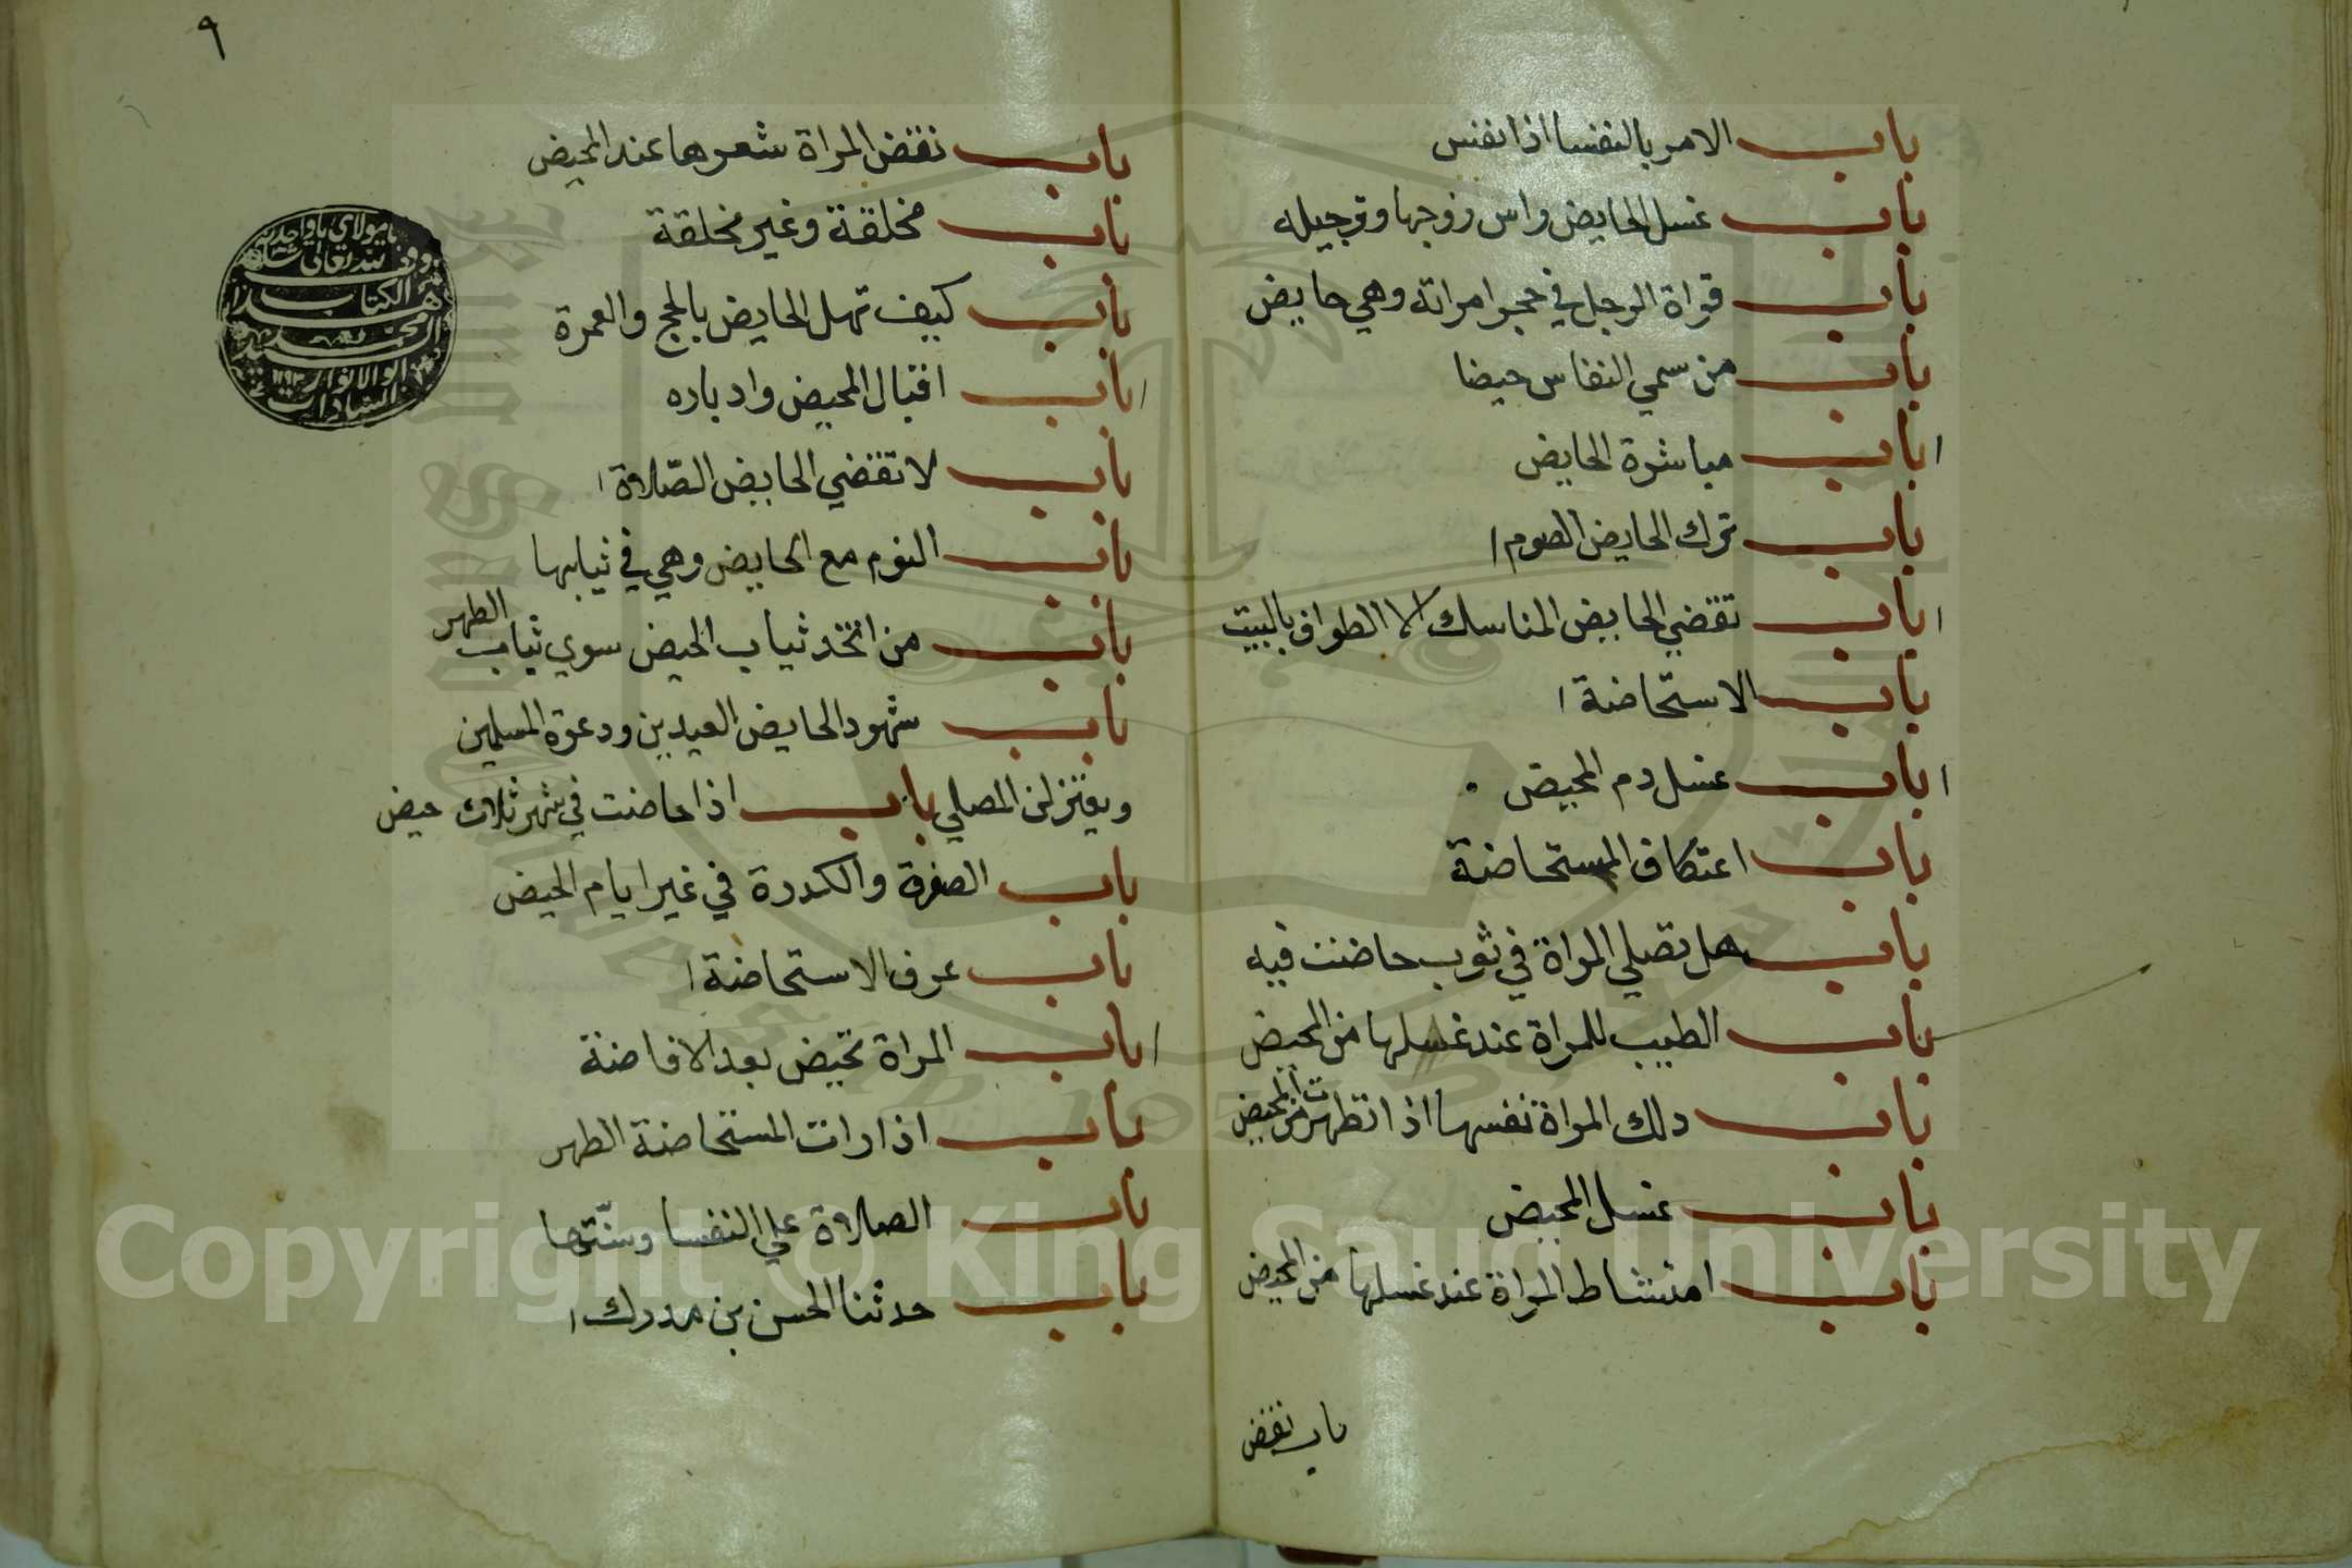 باب الامر بالنفسا اذا نفس
باب غسل الحايض راس زوجها وترجيله
باب قراة الرجل في حجر امراته وهي حايض
باب من سمي النفاس حيضا
باب مباشرة الحايض
باب ترك الحايض الصوم
باب تقضي الحايض المناسك الا الطواف بالبيت
باب الاستحاضة
باب غسل دم المحيض
باب اعتكاف المستحاضة
باب هل تصلي المراة في ثوب حاضت فيه
باب الطيب للمراة عند غسلها من المحيض
باب دلك المراة نفسها اذا تطهرت من المحيض
باب غسل المحيض
باب امتشاط المراة عند غسلها من المحيض
باب نقض
٩
باب نقض المراة شعرها عند المحيض
باب مخلقة وغير مخلقة
باب كيف تهل الحايض بالحج والعمرة
باب اقبال المحيض وادباره
باب لا تقضي الحايض الصّلاة
باب النوم مع الحايض وهي في ثيابها
باب من اتخذ ثياب الحيض سوي ثياب الطهر
باب شهود الحايض العيدين ودعوة المسلمين
ويعتزلن المصلي باب اذا حاضت في شهر ثلاث حيض
باب الصفرة والكدرة في غير ايام الحيض
باب عرف الاستحاضة
باب المراة تحيض بعد الافاضة
باب اذا رات المستحاضة الطهر
باب الصلاة علي النفسا وسنّتها
باب حدثنا الحسن بن مدرك
Copyright © King Saud University